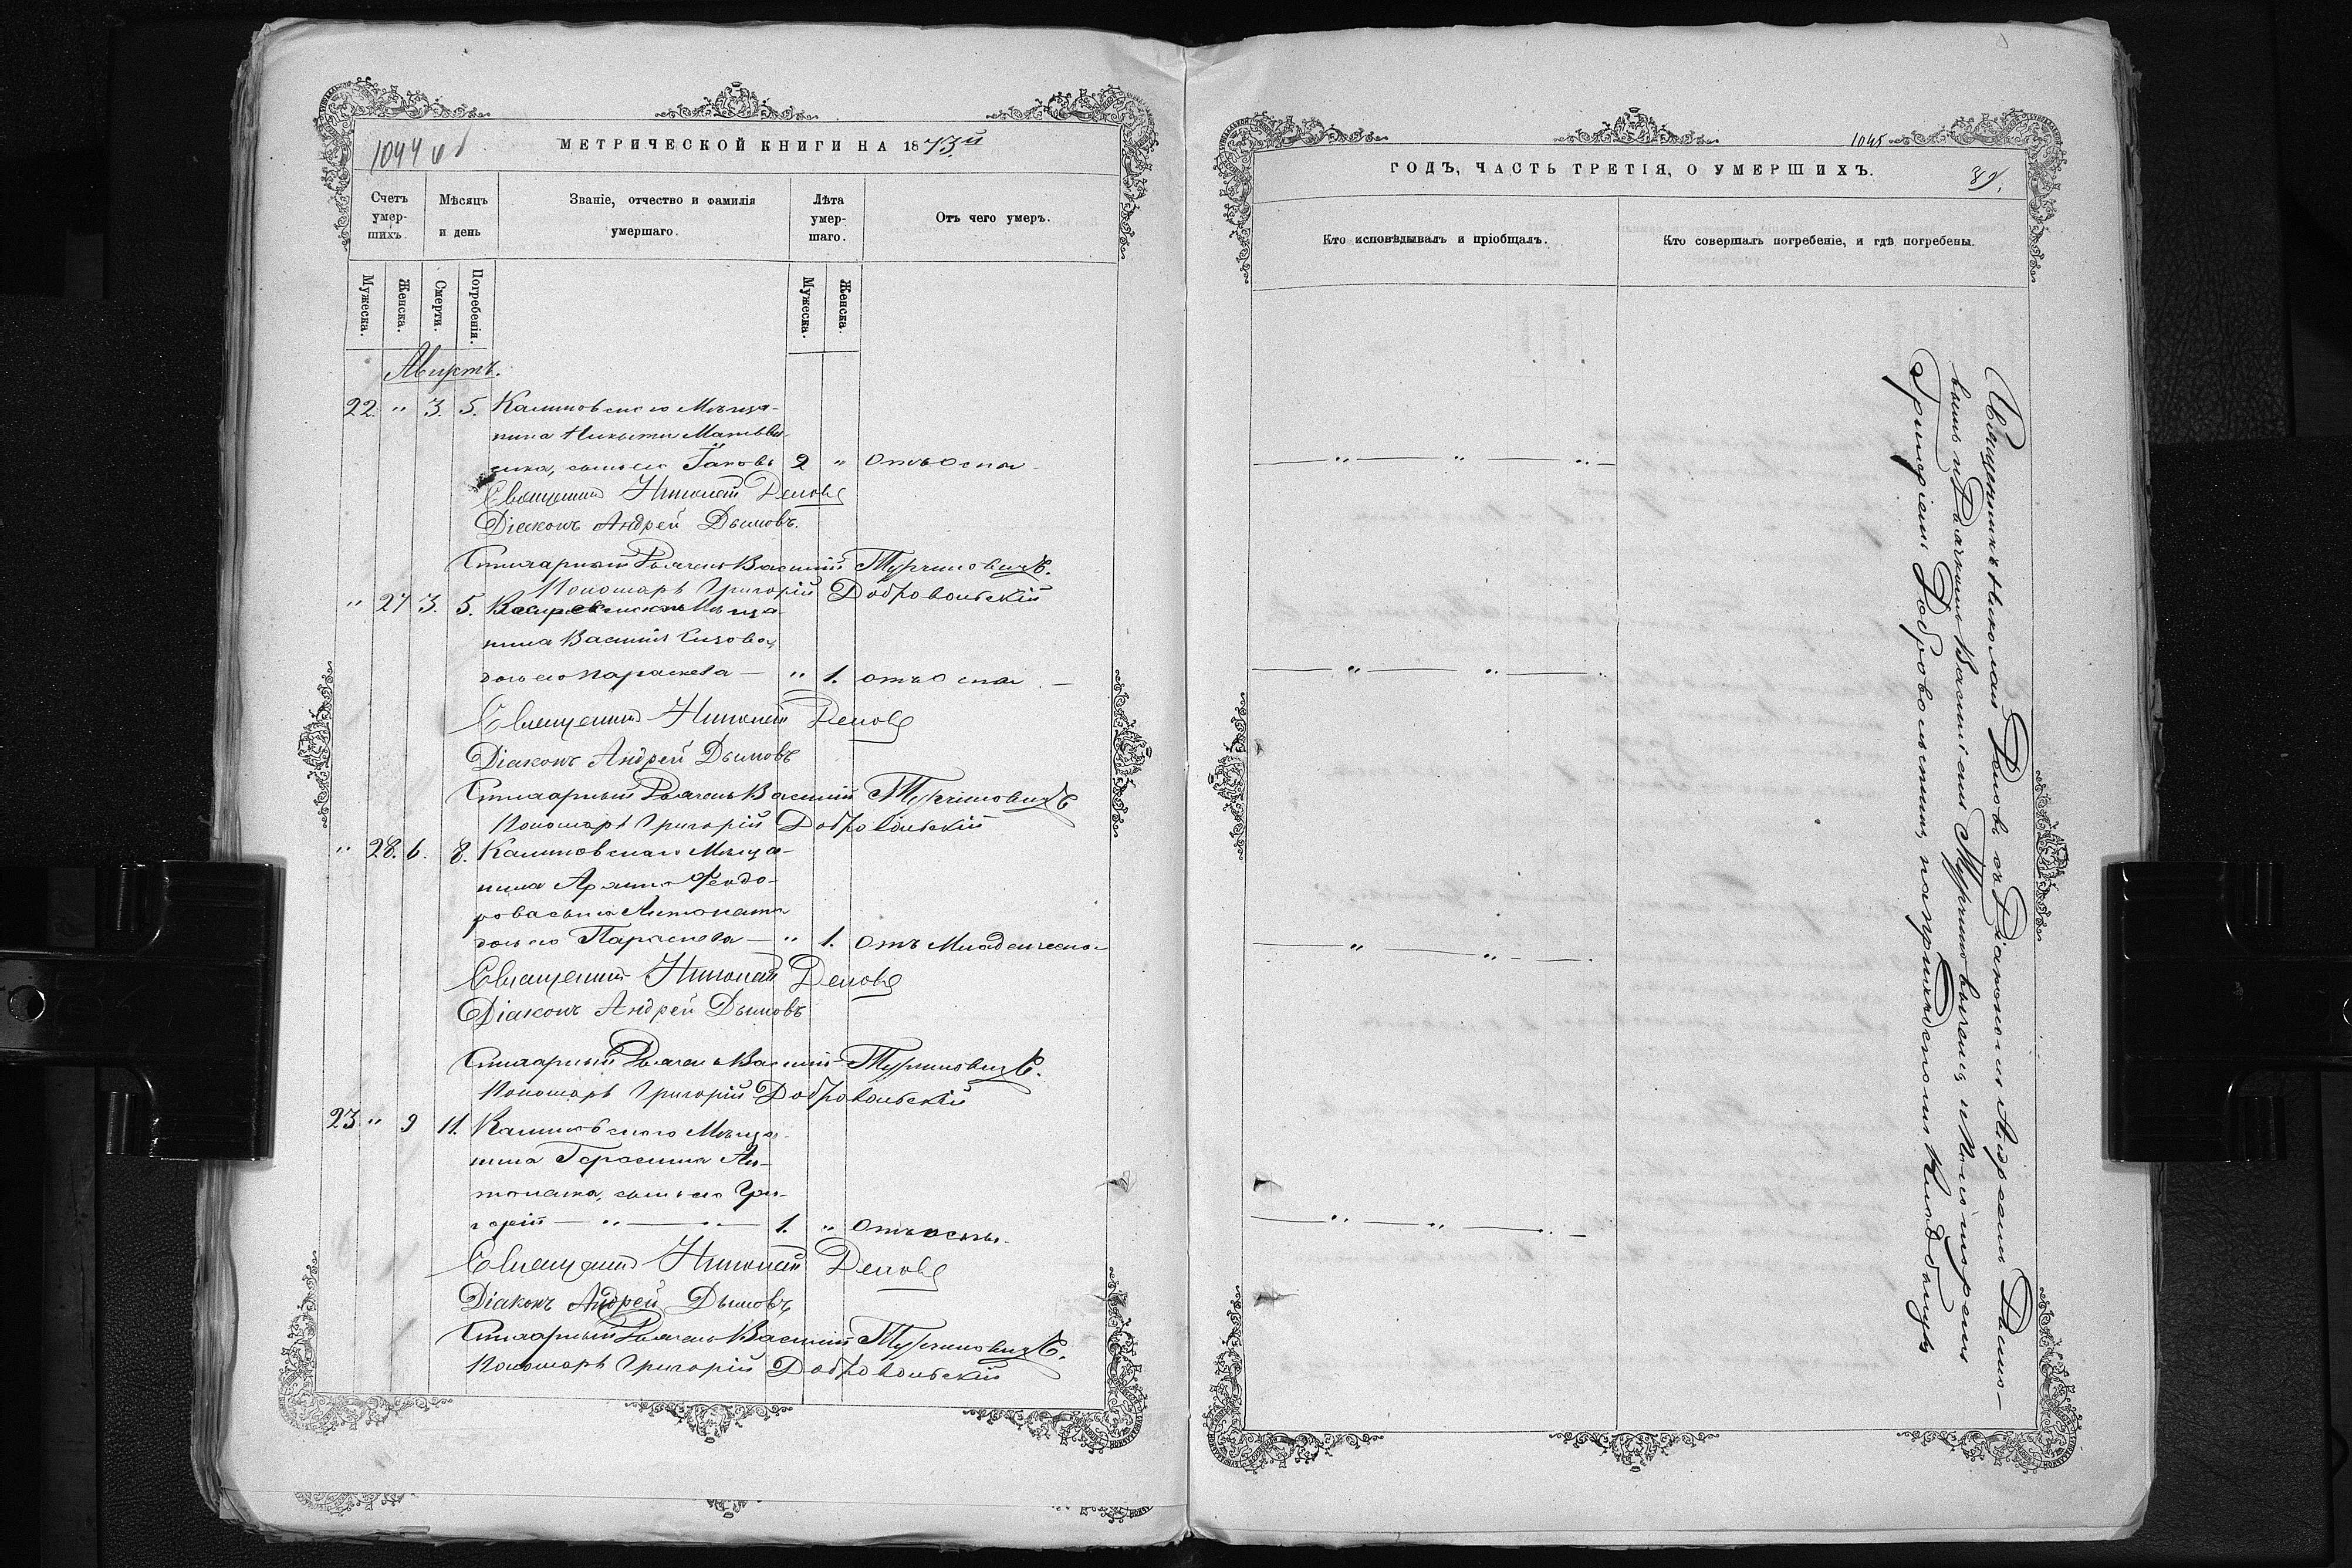 1044 об
МЕТРИЧЕСКОЙ КНИГИ НА 1873й
Счетъ умер-шихъ.
Мѣсяцъ и день
Званіе, отчество и фамилія умершаго.
Лѣта умер-шаго.
Отъ чего умеръ.
Мужеска.
Женска.
Смерти.
Погребенія.
Мужеска.
Женска.
Августъ.
22. " 3. 5. Калиновскаго Мѣща-
нина Никиты
сынъ его Іаковъ 2 " отъ оспы
Священникъ Николай
Діаконъ Андрей Дымовъ.
Стихарный Дьячекъ Василій Турчиновичъ.
Пономарь Григорій Добровольскій
" 27 3. 5. Мѣща-
нина Василія
дочь его Параскева — " 1. отъ оспы —
Священникъ Николай
Діаконъ Андрей Дымовъ
Стихарный Дьячекъ Василій Турчиновичъ
Пономарь Григорій Добровольскій
" 28. 6. 8. Калиновскаго Мѣща-
нина Феодо-
рова сына
дочь его Параскева — " 1. отъ Младенческой
Священникъ Николай
Діаконъ Андрей Дымовъ
Стихарный Дьячекъ Василій Турчиновичъ.
Пономарь Григорій Добровольскій
23. " 9 11. Калиновскаго Мѣща-
нина Герасима Ан-
сынъ его Гри-
горій — " — " — 1. " отъ оспы.
Священникъ Николай
Діаконъ Андрей Дымовъ
Стихарный Дьячекъ Василій Турчиновичъ.
Пономарь Григорій Добровольскій
1045
ГОДЪ, ЧАСТЬ ТРЕТІЯ, О УМЕРШИХЪ.
Кто исповѣдывалъ и пріобщалъ.
Кто совершалъ погребеніе, и гдѣ погребены.
Священникъ Николай съ Діакономъ Андреемъ Дымо-
вымъ и Дьячкомъ Василіемъ Турчиновичемъ, и Пономаремъ
Григоріемъ Добровольскимъ, на приходскомъ Кладбищѣ